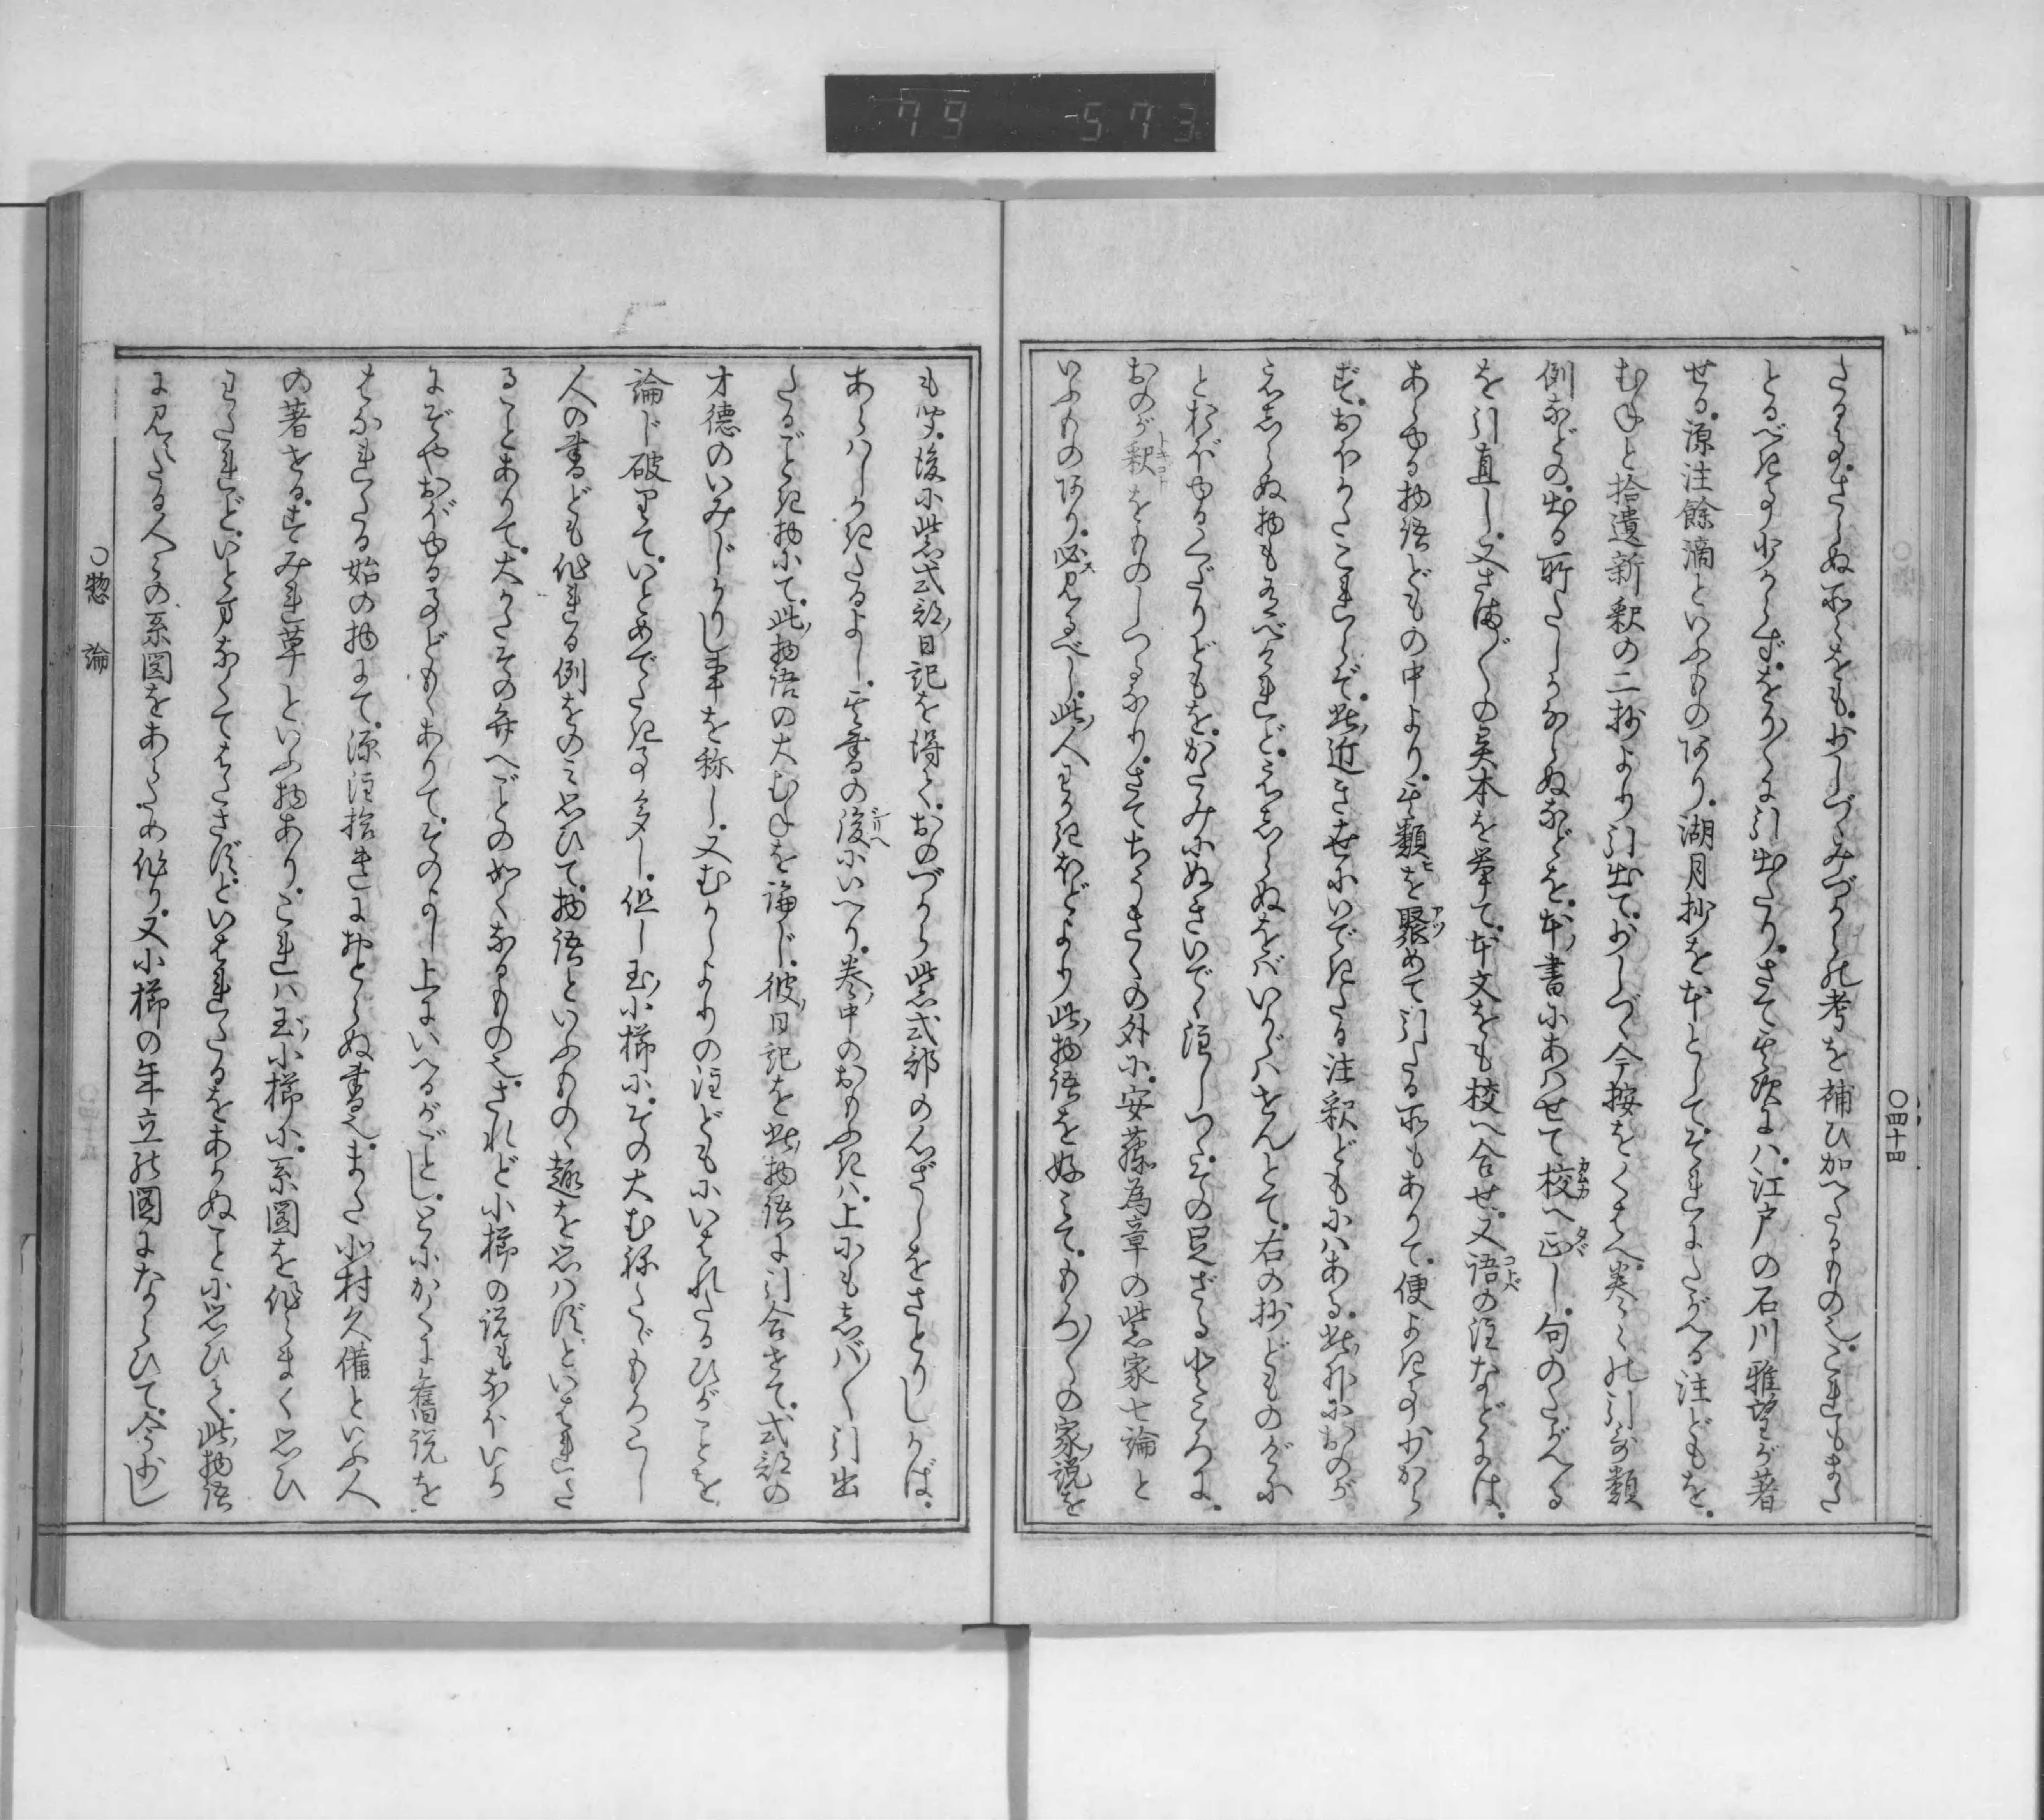 〇四十四
たる事、さらぬ所々をも、少しづゝみづからの考を補ひ加へたるもの也、これもまた
とるべき事少からず、をり〳〵に引出たり、さて其次には、江戸の石川雅望が著
せる、源注餘滴といふものあり、湖月抄を本として、それにたがへる注どもを、
むねと拾遺新釈の二抄より引出て、少しづゝ今按をくはへ、巻々の引歌の類
例などの、出る所たしかならぬなどを、本書にあはせて校へ正し、句のたがへる
を引直し、又さま〴〵の異本を挙て、本文をも校へ合せ、又語の注などには、
あらゆる物語どもの中より、其類を聚めて引たる所もありて、便よき事少から
ず、おほかたこれらぞ、此近き世にいできたる注釈どもにはある、此外におのが
えしらぬ物も有べけれど、えしらぬをばいかゞはせん、とて、右の抄どものがに
とおぼゆるくだりどもを、かたみにぬきいでゝ注しつゝ、その足ざるところに、
おのが釈をものしつるなり、さてちうさくの外に、安藤為章の紫家七論と
いふものあり、必見るべし、此人わかきほどより此物語を好みて、もろ〳〵の家説を
も學、後に紫式部日記を得て、おのづから紫式部の心ざしをさとりしかば、
あらはしかきたるよし、其書の後にいへり、巻中のおもふきは、上にもしば〳〵引出
たるごとき物にて、此物語の大むねを論じ、彼日記を此物語に引合せて、式部の
才徳のいみじかりし事を称し、又むかしよりの注どもにいはれたるひがことを
論じ破りて、いとめでたき事多し、但し玉小櫛に、その大むねくだ〴〵もろこし
人の書ども作れる例をのみ思ひて、物語といふものゝ趣を思はずといはれた
ることありて、大かたその弁へごとの如くなるもの也、されど小櫛の説もなほいか
にぞやおぼゆる事どもゝありて、そのよし上にいへるがごとし、とにかくに舊説を
はなれたる始の物にて、源注拾遺におとらぬ書也、また北村久備といふ人
の著せる、すみれ草といふ物あり、これは玉小櫛に、系圖を作らまく思ひ
わたれど、いとまなくてえはたさず、といはれたるをあかぬことに思ひて、此物語
に見えたる人々の系図をあらため作り、又小櫛の年立の図にならひて、今少し
〇惣論